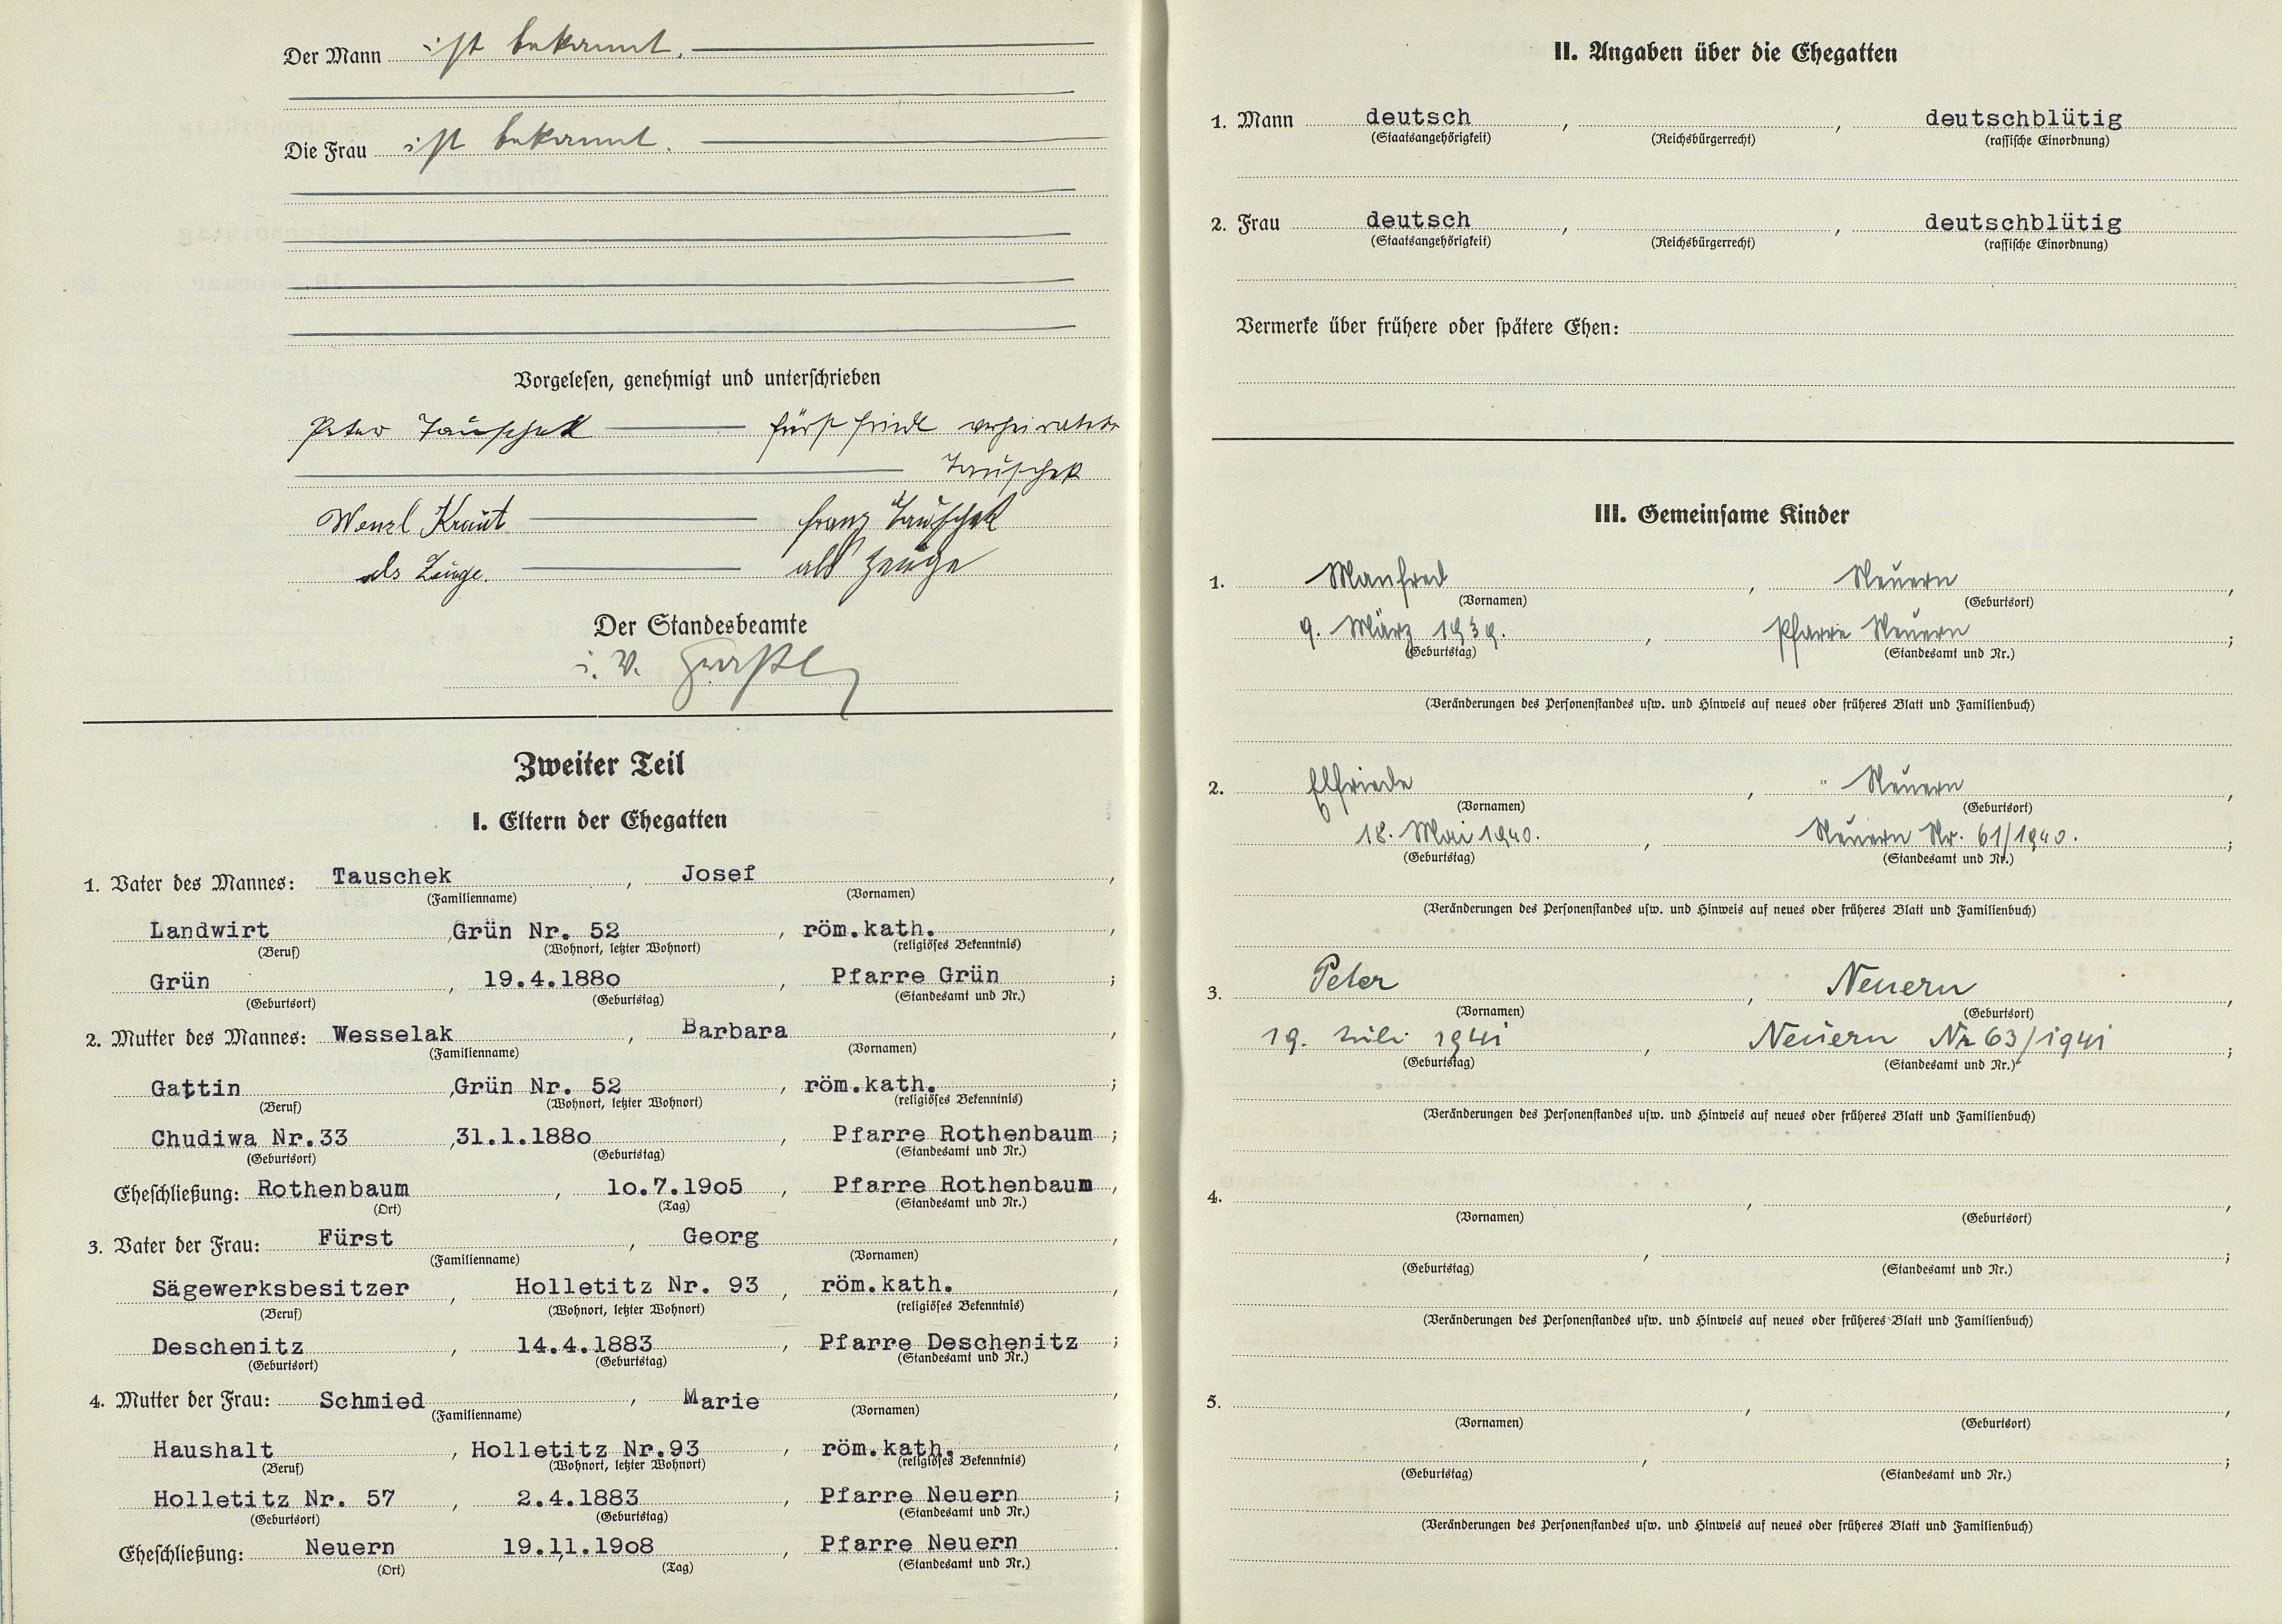 Der Mann ist bekannt.
Die Frau ist bekannt.
Vorgelesen, genehmigt und unterschrieben
Peter Tauschek Fürst Friedl verheiratete
Tauschek
Wenzl Kraut Franz Tauschek
als Zeuge. als Zeuge
Der Standesbeamte
i. V.
Zweiter Teil
I. Eltern der Ehegatten
1. Vater des Mannes: Tauschek , Josef ,
(Familienname) (Vornamen)
Landwirt , Grün Nr. 52 , röm.kath. ,
(Beruf) (Wohnort, letzter Wohnort) (religiöses Bekenntnis)
Grün , 19.4.188o , Pfarre Grün ;
(Geburtsort) (Geburtstag) (Standesamt und Nr.)
2. Mutter des Mannes: Wesselak , Barbara ,
(Familienname) (Vornamen)
Gattin , Grün Nr. 52 , röm.kath. ;
(Beruf) (Wohnort, letzter Wohnort) (religiöses Bekenntnis)
Chudiwa Nr.33 , 31.1.188o , Pfarre Rothenbaum ;
(Geburtsort) (Geburtstag) (Standesamt und Nr.)
Eheschließung: Rothenbaum , 1o.7.19o5 , Pfarre Rothenbaum ,
(Ort) (Tag) (Standesamt und Nr.)
3. Vater der Frau: Fürst , Georg ,
(Familienname) (Vornamen)
Sägewerksbesitzer , Holletitz Nr. 93 , röm.kath. ,
(Beruf) (Wohnort, letzter Wohnort) (religiöses Bekenntnis)
Deschenitz , 14.4.1883 , Pfarre Deschenitz ;
(Geburtsort) (Geburtstag) (Standesamt und Nr.)
4. Mutter der Frau: Schmied , Marie ,
(Familienname) (Vornamen)
Haushalt , Holletitz Nr.93 , röm.kath. ,
(Beruf) (Wohnort, letzter Wohnort) (religiöses Bekenntnis)
Holletitz Nr. 57 , 2.4.1883 , Pfarre Neuern ;
(Geburtsort) (Geburtstag) (Standesamt und Nr.)
Eheschließung: Neuern , 19.11.19o8 , Pfarre Neuern .
(Ort) (Tag) (Standesamt und Nr.)
II. Angaben über die Ehegatten
1. Mann deutsch , , deutschblütig
(Staatsangehörigkeit) (Reichsbürgerrecht) (rassische Einordnung)
2. Frau deutsch , , deutschblütig
(Staatsangehörigkeit) (Reichsbürgerrecht) (rassische Einordnung)
Vermerke über frühere oder spätere Ehen:
III. Gemeinsame Kinder
1. Manfred , Neuern ,
(Vornamen) (Geburtsort)
9. März 1939. , Pfarre Neuern ;
(Geburtstag) (Standesamt und Nr.)
(Veränderungen des Personenstandes usw. und Hinweis auf neues oder früheres Blatt und Familienbuch)
2. Elfriede , Neuern ,
(Vornamen) (Geburtsort)
18. Mai 1940. , Neuern Nr. 61/1940. ;
(Geburtstag) (Standesamt und Nr.)
(Veränderungen des Personenstandes usw. und Hinweis auf neues oder früheres Blatt und Familienbuch)
3. Peter , Neuern ,
(Vornamen) (Geburtsort)
19. Juli 1941 , Neuern Nr 63/1941 ;
(Geburtstag) (Standesamt und Nr.)
(Veränderungen des Personenstandes usw. und Hinweis auf neues oder früheres Blatt und Familienbuch)
4. , ,
(Vornamen) (Geburtsort)
, ;
(Geburtstag) (Standesamt und Nr.)
(Veränderungen des Personenstandes usw. und Hinweis auf neues oder früheres Blatt und Familienbuch)
5. , ,
(Vornamen) (Geburtsort)
, ;
(Geburtstag) (Standesamt und Nr.)
(Veränderungen des Personenstandes usw. und Hinweis auf neues oder früheres Blatt und Familienbuch)